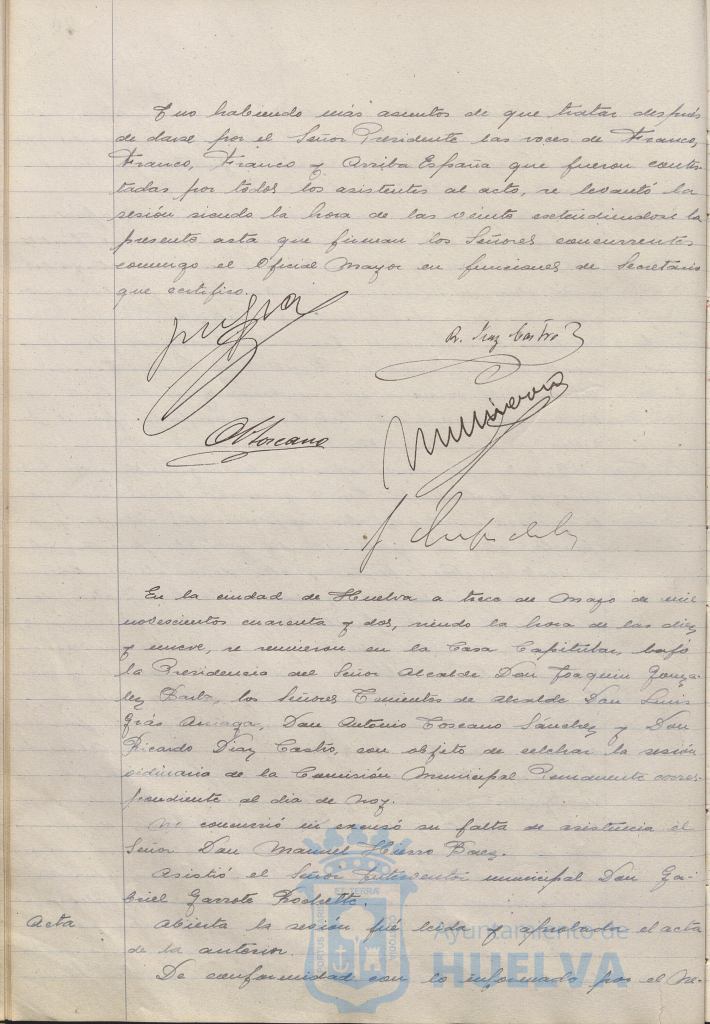 Y no habiendo más asuntos de que tratar después
de darse por el Señor Presidente las voces de Franco,
Franco, Franco y Arriba España que fueron contes-
tadas por todos los asistentes al acto, se levantó la
sesión siendo la hora de las veinte extendiéndose la
presente acta que firman los Señores concurrentes
conmigo el Oficial Mayor en funciones de Secretario
que certifico.
R. Diaz Castro
A Toscano
En la ciudad de Huelva a trece de Mayo de mil
novescientos cuarenta y dos, siendo la hora de las diez
y nueve, se reunieron en la Casa Capitular, bajo
la Presidencia del Señor Alcalde Don Joaquin Gonza-
lez Barba, los Señores Tenientes de Alcalde Don Luis
Grás Arriaga, Don Antonio Toscano Sánchez y Don
Ricardo Diaz Castro, con objeto de celebrar la sesión
ordinaria de la Comisión Municipal Permanente corres-
pondiente al dia de hoy.
No concurrió ni excusó su falta de asistencia el
Señor Don Manuel Hierro Baez.
Asistió el Señor Interventor municipal Don Ga-
briel Garrote
ET TERRÆ
Acta Abierta la sesión fué leida y aprobada el acta
de la anterior.
Ayuntamiento de
HUELVA
PORTUS MARIS CUSTODIA
De conformidad con lo informado por el Ne-